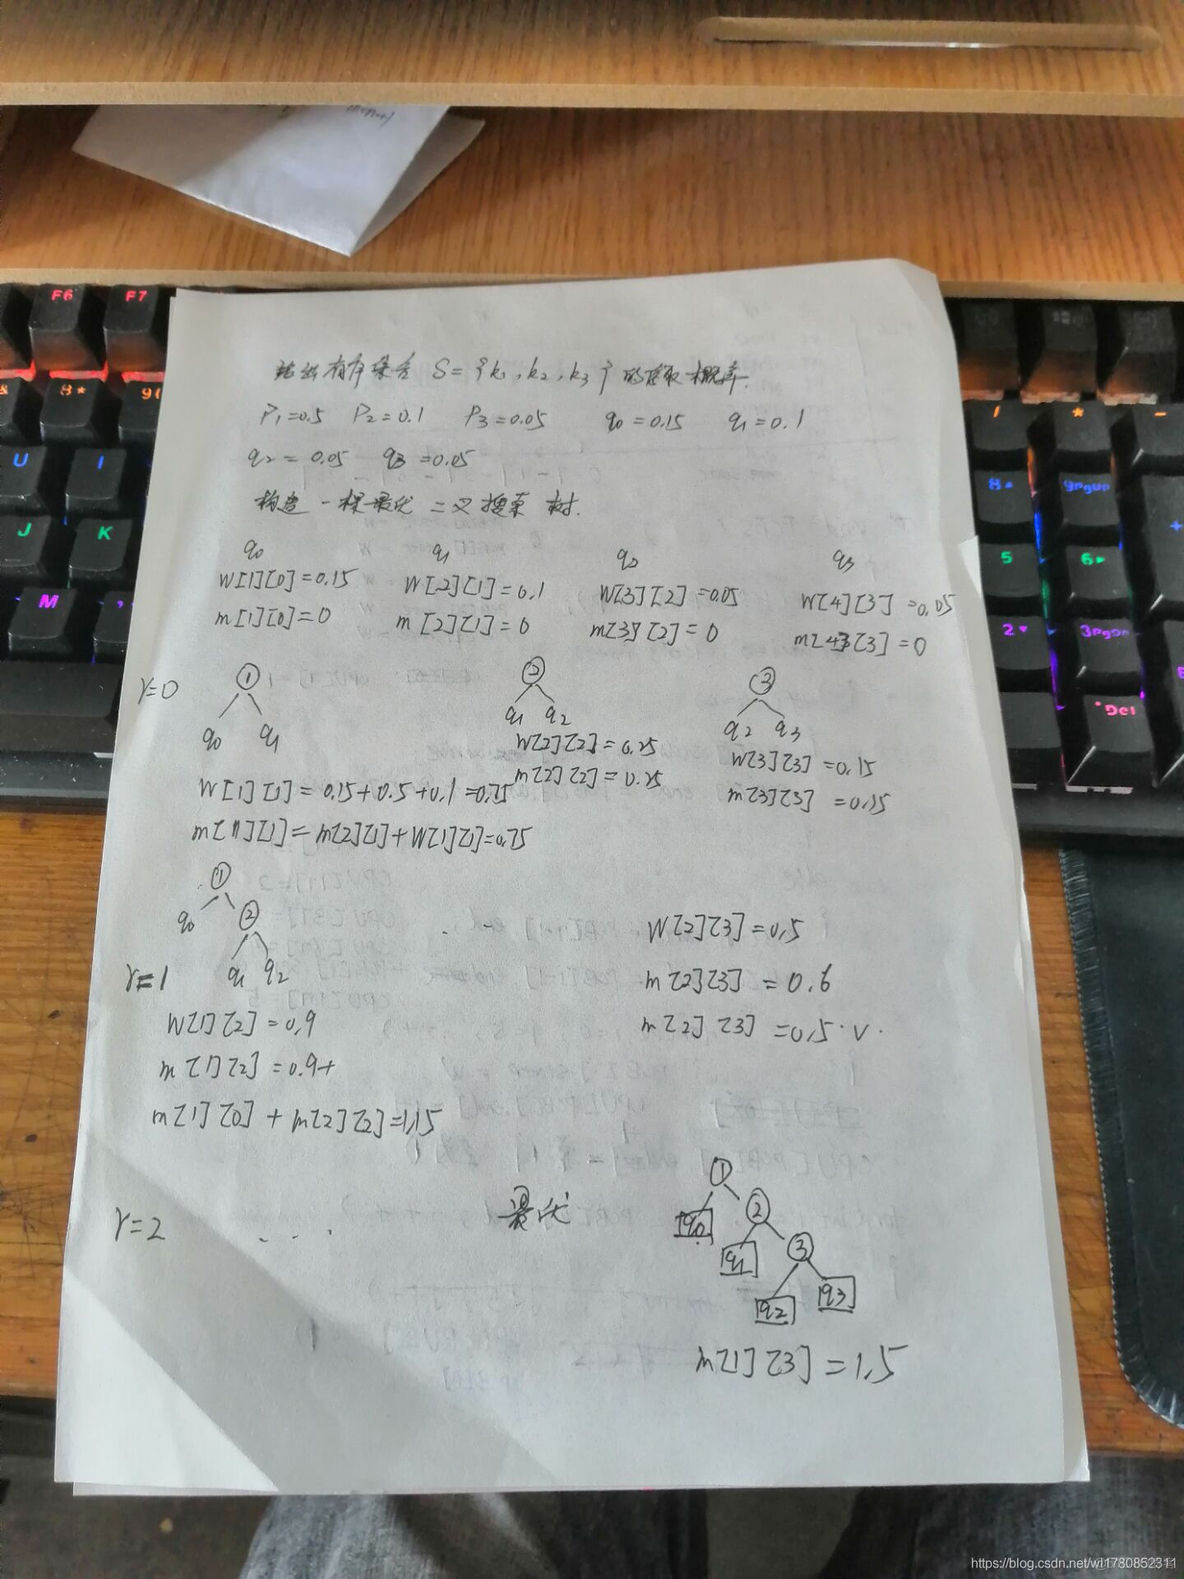 给出有序集合 S={k1,k2,k3}的存取概率.
P1=0.5 P2=0.1 P3=0.05 q0=0.15 q1=0.1
q2=0.05 q3=0.05
构造一棵最优二叉搜索树.
q0 q1 q2 q3
W[1][0]=0.15 W[2][1]=0.1 W[3][2]=0.05 W[4][3]=0.05
m[1][0]=0 m[2][1]=0 m[3][2]=0 m[4][3]=0
r=0 ① ② ③
q0 q1 q1 q2 q2 q3
W[2][2]=0.25 W[3][3]=0.15
m[2][2]=0.25 m[3][3]=0.15
W[1][1]=0.15+0.5+0.1=0.75
m[1][1]=m[2][1]+W[1][1]=0.75
①
q0 ② W[2][3]=0.5
r=1 q1 q2 m[2][3]=0.6
W[1][2]=0.9 m[2][3]=0.5.√.
m[1][2]=0.9+
m[1][0]+m[2][2]=1.15
r=2 ... 最优 ①
q0 ②
q1 ③
q2 q3
m[1][3]=1.5
F6 F7
8* 9(
U I
J K
M
/ * -
8 9PgUp
5 6 +
2 3PgDn
Del
https://blog.csdn.net/wl1780852311